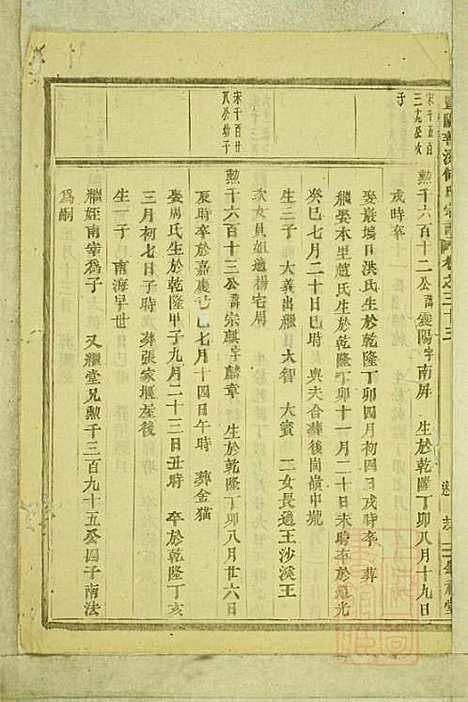 宋千五百
三克公次
子
勲千六百十二公諱襄陽字南屏 生於乾隆丁卯八月十九日
戌時卒
娶嵓塢日洪氏生於乾隆丁卯四月初四日戌時卒 葬
繼娶本里趙氏生於乾隆丁卯十一月二十日未時卒於道光
癸巳七月二十日巳時 與夫合葬後崗嶺中壠
生三子 大義出繼 大智 大賓 二女長適王沙溪王
次女貝姐適楊宅周
宋千百廿
公幼子
勲千六百十三公諱宗麒字麟章 生於乾隆丁卯八月廿六日
夏時卒於嘉慶己巳七月十四日午時 葬金猫
娶周氏生於乾隆甲子九月二十三日丑時 卒於乾隆丁亥
三月初七日子時 葬張家堰差後
生一子 南海早世
繼姪南宰為子 又繼堂兄勲千三百九十五公四子南法
為嗣